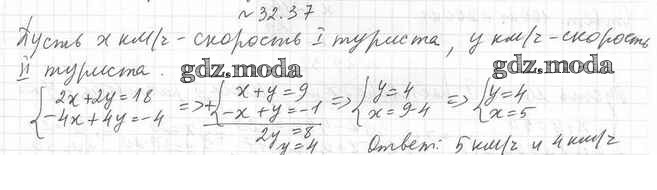 №32.37
Пусть x км/ч - скорость I туриста, y км/ч - скорость
II туриста.
gdz.moda gdz.moda
{2x+2y=18 => +{x+y=9 => {y=4 => {y=4
{-4x+4y=-4 {-x+y=-1 {x=9-4 {x=5
2y=8
y=4 Ответ: 5 км/ч и 4 км/ч